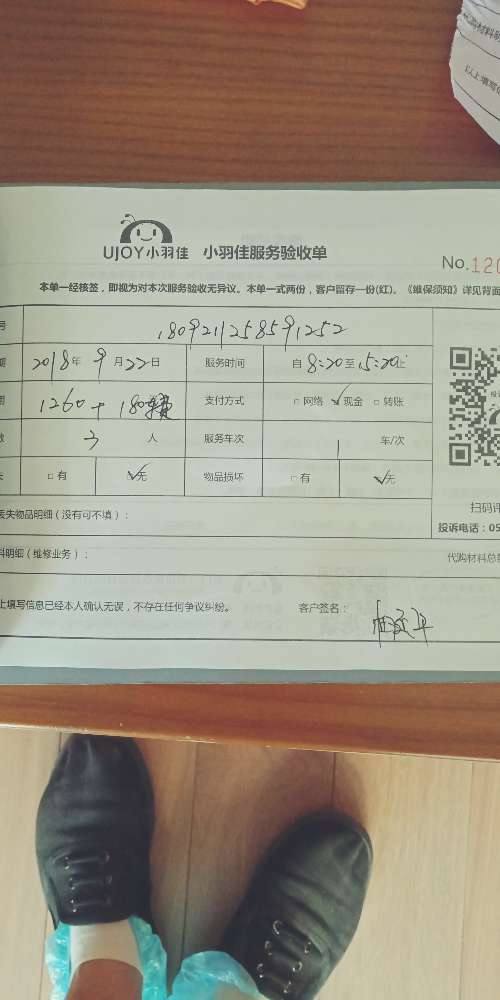 代购材料明
以上填写信
UJOY小羽佳 小羽佳服务验收单
No.120
本单一经核签，即视为对本次服务验收无异议。本单一式两份，客户留存一份(红)。《维保须知》详见背面
号 1809211258591252
期 2018年9月22日 服务时间 自8:20至15:20止
用 1260+180 支付方式 □网络 ✓现金 □转账
数 3 人 服务车次 1 车/次
失 □有 ✓无 物品损坏 □有 ✓无
扫码评
丢失物品明细（没有可不填）：
投诉电话：05
料明细（维修业务）： 代购材料总额
上填写信息已经本人确认无误，不存在任何争议纠纷。 客户签名：